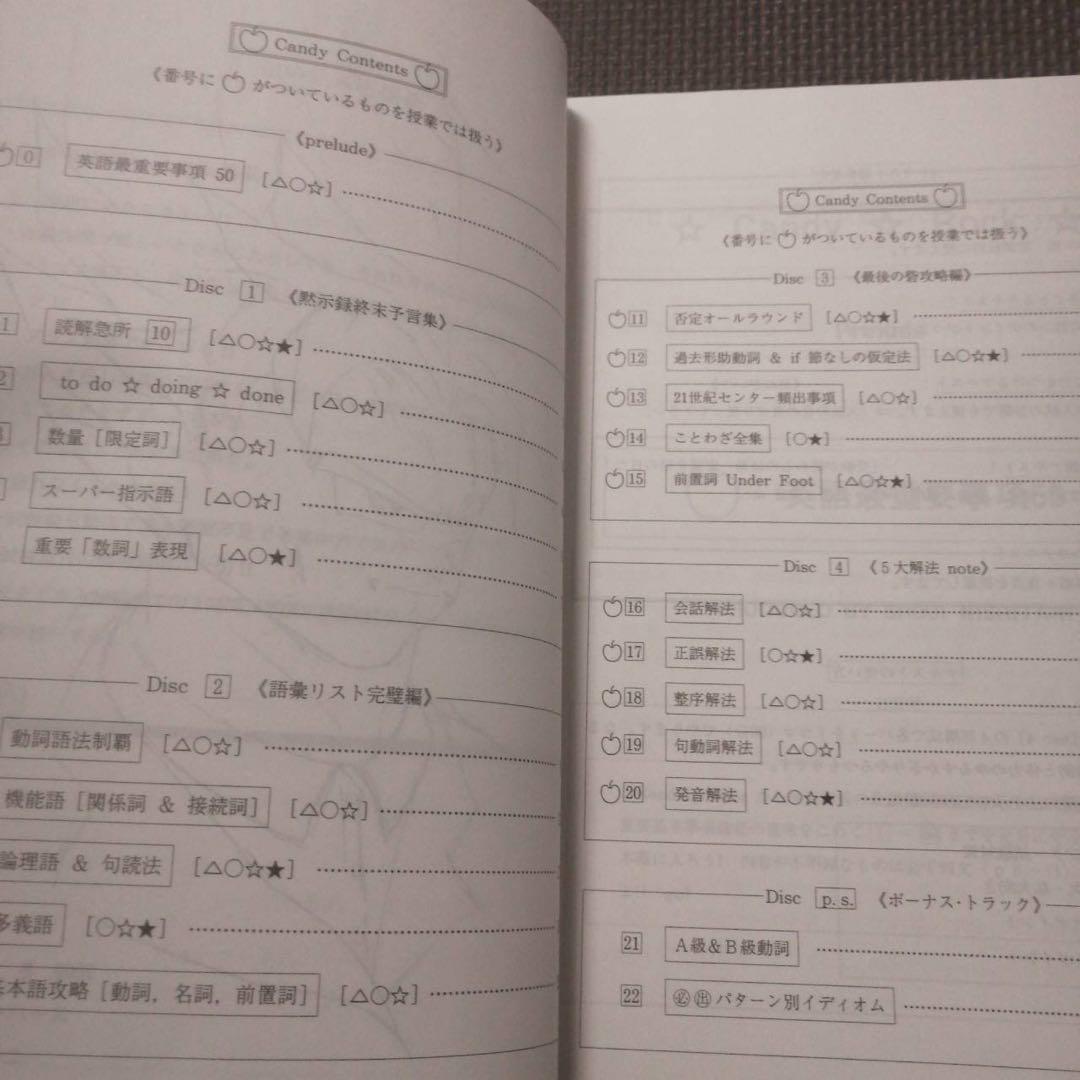 Candy Contents
《番号に がついているものを授業では扱う》
《prelude》
0 英語最重要事項 50 [△○☆]
Disc 1 《黙示録終末予言集》
1 読解急所 10 [△○☆★]
2 to do ☆ doing ☆ done [△○☆]
数量［限定詞］ [△○☆]
スーパー指示語 [△○☆]
重要「数詞」表現 [△○★]
Disc 2 《語彙リスト完璧編》
動詞語法制覇 [△○☆]
機能語［関係詞 & 接続詞］ [△○☆]
論理語 & 句読法 [△○☆★]
多義語 [○☆★]
基本語攻略［動詞，名詞，前置詞］ [△○☆]
Candy Contents
《番号に がついているものを授業では扱う》
Disc 3 《最後の砦攻略編》
11 否定オールラウンド [△○☆★]
12 過去形助動詞 & if 節なしの仮定法 [△○☆★]
13 21世紀センター頻出事項 [△○☆]
14 ことわざ全集 [○★]
15 前置詞 Under Foot [△○☆★]
Disc 4 《5大解法 note》
16 会話解法 [△○☆]
17 正誤解法 [○☆★]
18 整序解法 [△○☆]
19 句動詞解法 [△○☆]
20 発音解法 [△○☆★]
Disc p.s. 《ボーナス・トラック》
21 A級&B級動詞
22 ㊙出パターン別イディオム